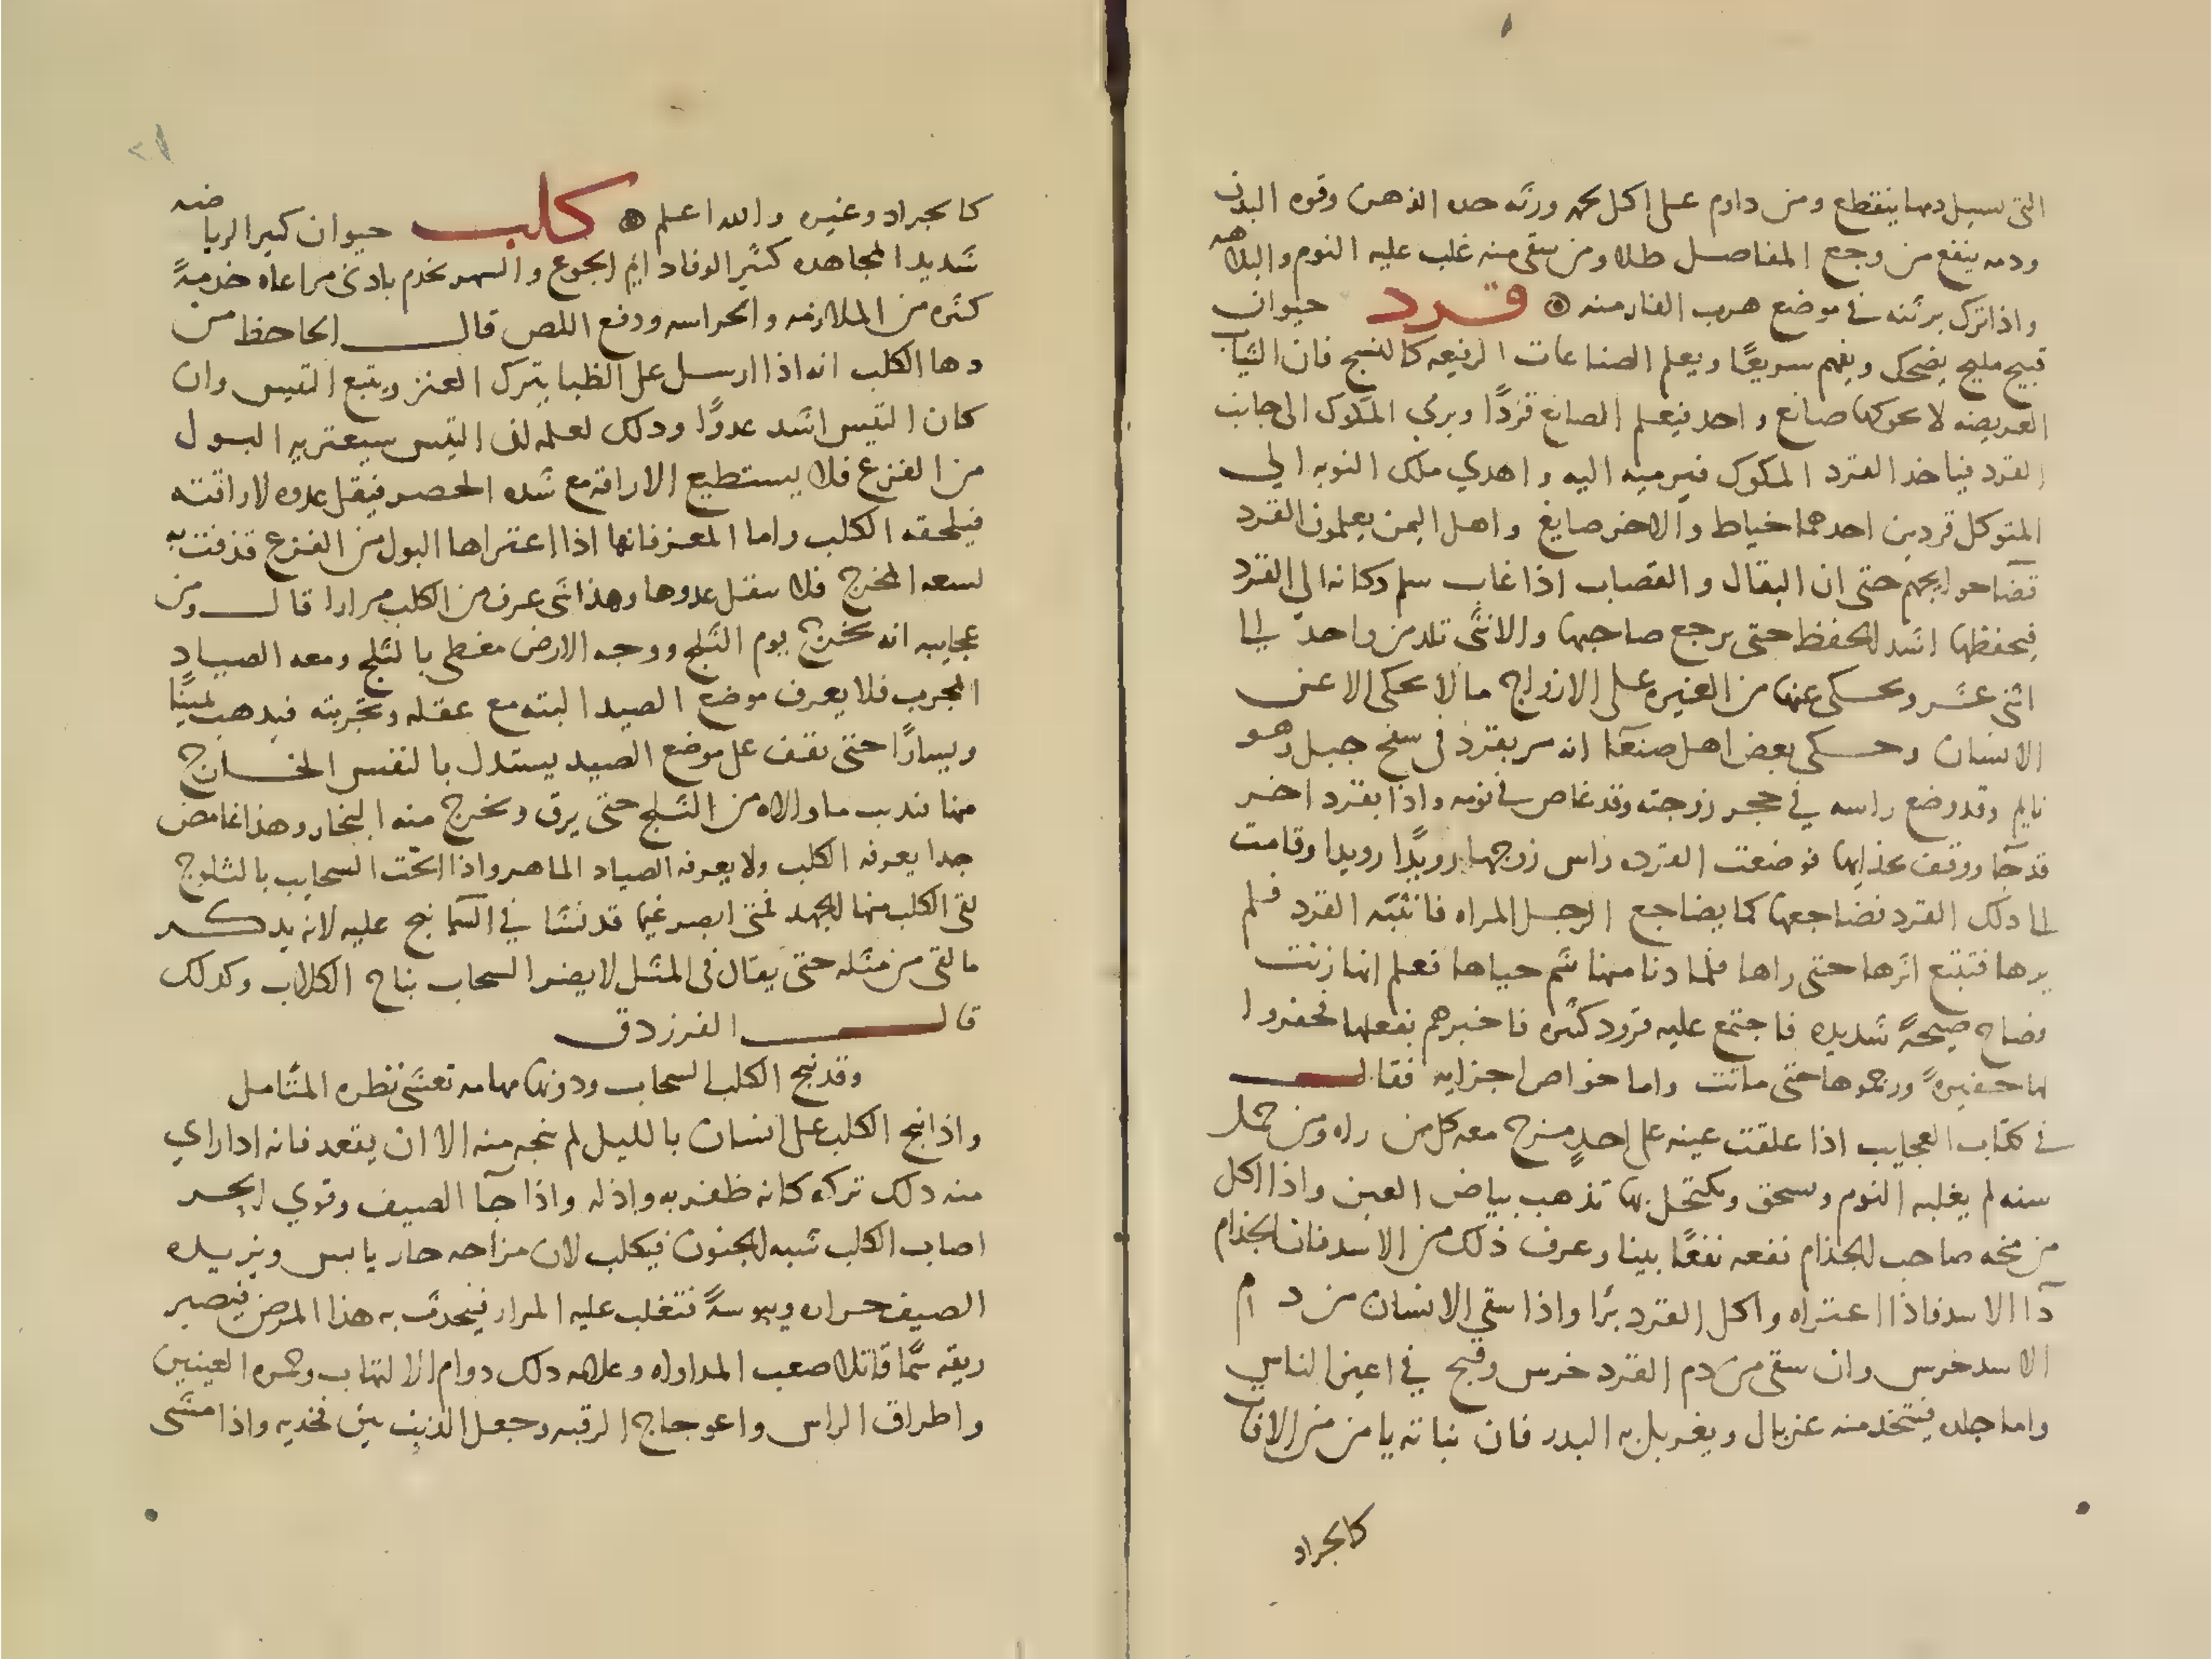 التي سيل دمها ينقطع ومن داوم على اكل لحمه ورثه حده الذهن وقوه البدن
ودمه ينفع من وجع المفاصل طلا ومن سقى منه غلب عليه النوم والبلاهه
واذا ترك برثنه في موضع هرب الفار منه قرد حيوان
قبيح مليح يضحك ويفهم سريعًا ويعلم الصناعات الرفيعه كالنسج فان الثياب
العريضه لا يحوكها صانع واحد فيعلم الصانع قردًا ويرمي المكوك الى جانب
القرد فياخد القرد المكوك فيرميه اليه واهدي ملك النوبه الي
المتوكل قردين احدهما خياط والاخر صايغ واهل اليمن يعلمون القرد
قضا حوايجهم حتى ان البقال والقصاب اذا غاب سلم دكانه الي القرد
فيحفظها اشد الحفظ حتى يرجع صاحبها والانثى تلد من واحد الى
اثني عشر ويحكى عنها من الغيره على الازواج ما لا يحكى الا عن
الانسان وحكى بعض اهل صنعآ انه مر بقرد في سفح جبل وهو
نايم وقد وضع راسه في حجر زوجته وقد غاص في نومه واذا بقرد اخر
قد جآ ووقف بحذايها فوضعت القرده راس زوجها رويدًا رويدا وقامت
الى دلك القرد فضاجعها كما يضاجع الرجل المراه فانتبه القرد فلم
يرها فتبع اثرها حتى راها فلما دنا منها شم حياها فعلم انها زنت
فصاح صيحةً شديده فاجتمع عليه قرود كثيره فاخبرهم بفعلها فحفروا
لها حفيرةً ورجموها حتى ماتت واما خواص اجزايه فقال
في كتاب العجايب اذا علقت عينه على احدٍ مزح معه كل من راه ومن حمل
سنه لم يغلبه النوم وسحق ويكتحل بها تذهب بياض العين واذا اكل
من مخه صاحب الجذام نفعه نفعًا بينا وعرف ذلك من الاسد فان الجذام
دآ الاسد فاذا اعتراه واكل القرد برًا واذا سقي الانسان من دم
الاسد خرس وان سقى من دم القرد خرس وقبح في اعين الناس
واما جلده فيتخذ منه غربال ويغربل به البدر فان نباته يامن من الافات
كالجراد
كالجراد وغيره والله اعلم كلب حيوان كير الرياضه
شديد المجاهده كثير الوفا دايم الجوع والسهر يخدم بادنى مراعاه خدمةً
كثيره من الملازمه والحراسه ودفع اللص قال الجاحظ من
دها الكلب انه اذا ارسل على الظبا يترك العنز ويتبع التيس وان
كان التيس اشد عدوًا ودلك لعلمه ان التيس سيعتريه البول
من الفزع فلا يستطيع الاراقه مع شده الحصر فيقل عدوه لاراقته
فيلحقه الكلب واما المعز فانها اذا اعتراها البول من الفزع قذفت به
لسعه المخرج فلا يقل عدوها وهذا شي عرف من الكلب مرارا قال ومن
عجايبه انه يخرج يوم الثلج ووجه الارض مغطى بالثلج ومعه الصياد
المجرب فلا يعرف موضع الصيد البته مع عقله وتجربته فيدهب يمينًا
ويسارًا حتى يقف على موضع الصيد يستدل بالنفس الخارج
منها تدب ما والاه من الثلج حتى يرق ويخرج منه البخار وهذا غامض
جدا يعرفه الكلب ولا يعرفه الصياد الماهر واذا الحت السحايب بالثلوج
لقى الكلب منها الجهد فمتى ابصر غيما قد نشا في السما نبح عليه لانه يدكر
ما لقى من مثله حتى يقال في المثل لا يضر السحاب نباح الكلاب وكدلك
قال الفرزدق
وقد نبح الكلب السحاب ودونها مهامه تعشى نظره المتامل
واذا نبح الكلب على انسان بالليل لم ينجه منه الا ان يقعد فانه ادا راي
منه دلك تركه كانه ظفر به واذله واذا جآ الصيف وقوي الحر
اصاب الكلب شبه الجنون فيكلب لان مزاجه حار يابس ويزيده
الصيف حراره ويبوسةً فتغلب عليه المرار فيحدث به هذا المرض فيصير
ريقه سمًا قاتلا صعب المداواه وعلامه دلك دوام الالتهاب وحمره العينين
واطراق الراس واعوجاج الرقبه وجعل الذنب بين فخديه واذا مشى